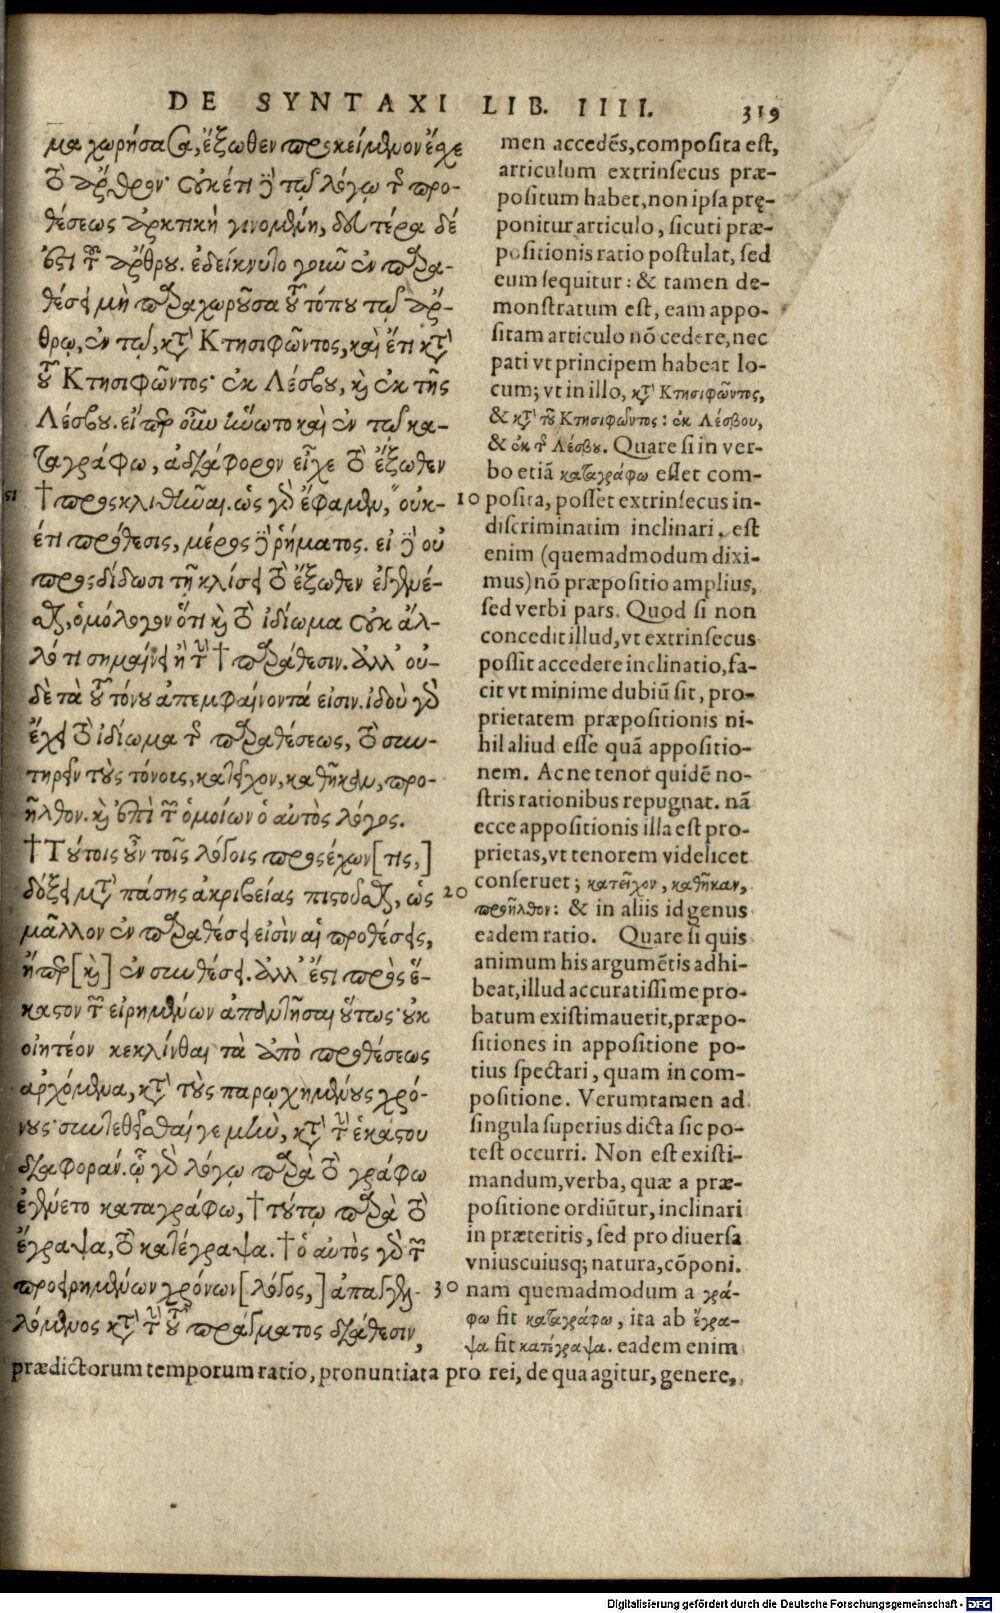 DE SYNTAXI LIB. IIII. 319
μα χωρήσασα, ἔξωθεν προκείμενον ἔχε
τὸ ἄρθρον· οὐκ ἔτι γὰρ τῷ λόγῳ τῆς προ-
θέσεως ἀρκτικὴ γινομένη, δευτέρα δέ
ἐστι τοῦ ἄρθρου. ἐδείκνυτο γοῦν ἐν παρα-
θέσει μὴ παραχωροῦσα τοῦ τόπου τῷ ἄρ-
θρῳ, ἐν τῷ, κατὰ Κτησιφῶντος, καὶ ἔτι κατὰ
τοῦ Κτησιφῶντος· ἐκ Λέσβου, καὶ ἐκ τῆς
Λέσβου. εἴπερ οὖν ἡνωτο καὶ ἐν τῷ κα-
ταγράφω, ἀδιάφορον εἶχε τὸ ἔξωθεν
†προσκλιθῆναι. ὡς γὰρ ἔφαμεν, "οὐκ-
έτι πρόθεσις, μέρος γὰρ ῥήματος. εἰ γὰρ οὐ
προσδίδωσι τῇ κλίσει τὸ ἔξωθεν
ὁμόλογον ὅτι καὶ τὸ ἰδίωμα οὐκ ἄλ-
λό τι σημαίνει ἢ τὴν †παράθεσιν. ἀλλ' οὐ-
δὲ τὰ τοῦ τόνου ἀπεμφαίνοντά εἰσιν. ἰδοὺ γὰρ
ἔχει τὸ ἰδίωμα τῆς παραθέσεως, τὸ συν-
τηρεῖν τοὺς τόνους, κατεῖχον, καθῆκαν, προ-
ῆλθον. καὶ ἐπὶ τῶν ὁμοίων ὁ αὐτὸς λόγος.
†Τούτοις οὖν τοῖς λόγοις προσέχων [τις,]
δόξει μετὰ πάσης ἀκριβείας πιστοῦσθαι, ὡς
μᾶλλον ἐν παραθέσει εἰσὶν αἱ προθέσεις,
ἤπερ [καὶ] ἐν συνθέσει. ἀλλ' ἔστι πρὸς ἕ-
καστον τῶν εἰρημένων ἀπαντῆσαι οὕτως· οὐκ
οἰητέον κεκλίνθαι τὰ ἀπὸ προθέσεως
ἀρχόμενα, κατὰ τοὺς παρῳχημένους χρό-
νους· συντεθεῖσθαί γε μὴν, κατὰ τὴν ἑκάστου
διαφοράν. ᾧ γὰρ λόγῳ παρὰ τὸ γράφω
ἐγένετο καταγράφω, †τούτῳ παρὰ τὸ
ἔγραψα, τὸ κατέγραψα. †ὁ αὐτὸς γὰρ τῶν
προειρημένων χρόνων [λόγος,] ἀπαγγελ-
λόμενος κατὰ τὴν τοῦ πράγματος διάθεσιν,
men accedẽs, composita est,
articulum extrinsecus præ-
positum habet, non ipsa prę-
ponitur articulo, sicuti præ-
positionis ratio postulat, sed
eum sequitur: & tamen de-
monstratum est, eam appo-
sitam articulo nõ cedere, nec
pati vt principem habeat lo-
cum; vt in illo, κατὰ Κτησιφῶντος,
& κατὰ τοῦ Κτησιφῶντος: ἐκ Λέσβου,
& ἐκ τῆς Λέσβου. Quare si in ver-
bo etiã καταγράφω esset com-
10 posita, posset extrinsecus in-
discriminatim inclinari. est
enim (quemadmodum dixi-
mus) nõ præpositio amplius,
sed verbi pars. Quod si non
concedit illud, vt extrinsecus
possit accedere inclinatio, fa-
cit vt minime dubiũ sit, pro-
prietatem præpositionis ni-
hil aliud esse quã appositio-
nem. Ac ne tenor quidẽ no-
stris rationibus repugnat. nã
ecce appositionis illa est pro-
prietas, vt tenorem videlicet
20 conseruet; κατεῖχον, καθῆκαν,
προῆλθον: & in aliis id genus
eadem ratio. Quare si quis
animum his argumẽtis adhi-
beat, illud accuratissime pro-
batum existimauerit, præpo-
sitiones in appositione po-
tius spectari, quam in com-
positione. Verumtamen ad
singula superius dicta sic po-
test occurri. Non est existi-
mandum, verba, quæ a præ-
positione ordiũtur, inclinari
in præteritis, sed pro diuersa
vniuscuiusq; natura, cõponi.
30 nam quemadmodum a γρά-
φω fit καταγράφω, ita ab ἔγρα-
ψα fit κατέγραψα. eadem enim
prædictorum temporum ratio, pronuntiata pro rei, de qua agitur, genere,
Digitalisierung gefördert durch die Deutsche Forschungsgemeinschaft - DFG